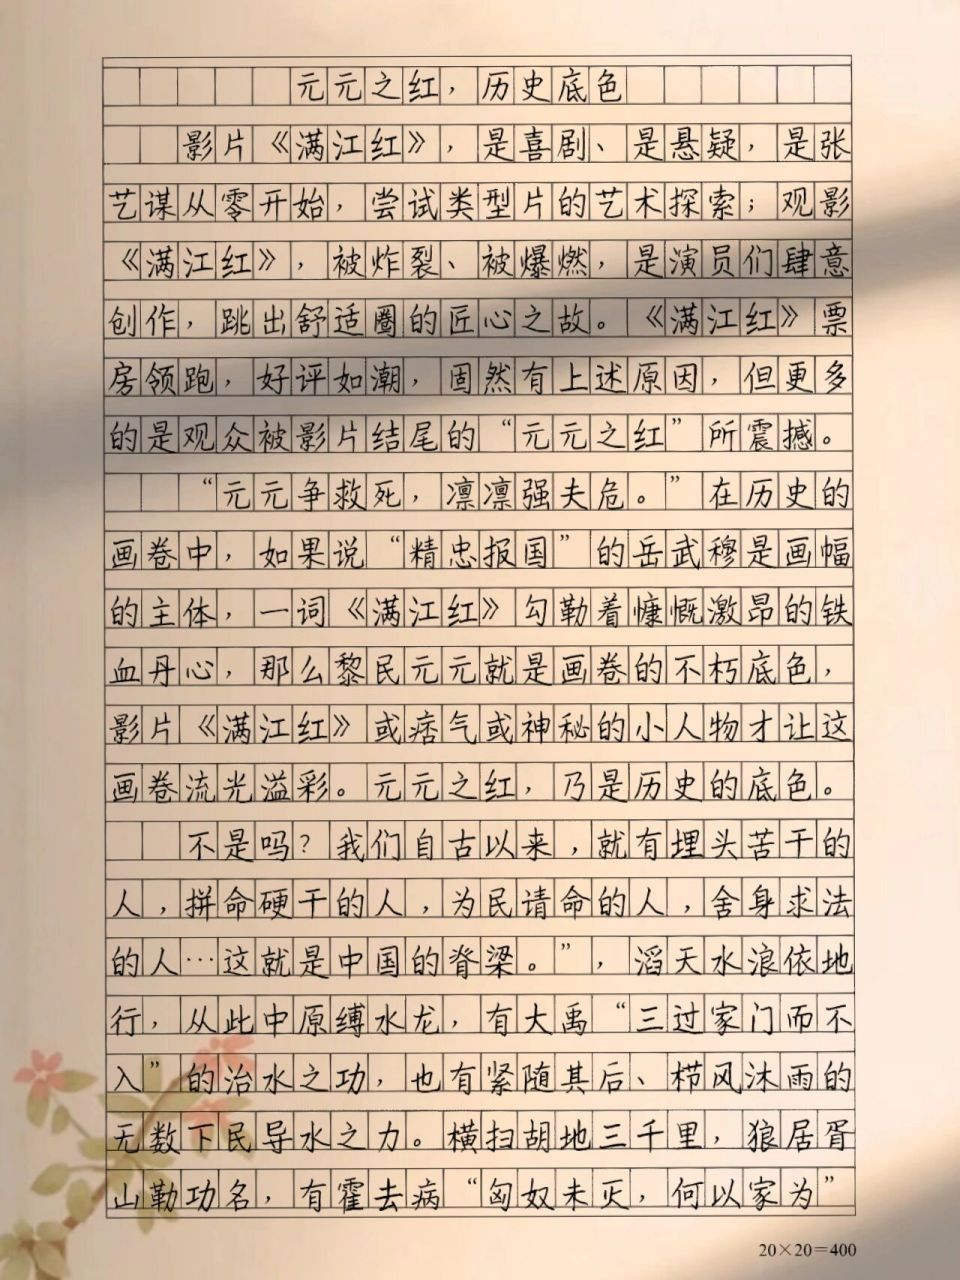 元元之红，历史底色
影片《满江红》，是喜剧、是悬疑，是张
艺谋从零开始，尝试类型片的艺术探索；观影
《满江红》，被炸裂、被爆燃，是演员们肆意
创作，跳出舒适圈的匠心之故。《满江红》票
房领跑，好评如潮，固然有上述原因，但更多
的是观众被影片结尾的“元元之红”所震撼。
“元元争救死，凛凛强夫危。”在历史的
画卷中，如果说“精忠报国”的岳武穆是画幅
的主体，一词《满江红》勾勒着慷慨激昂的铁
血丹心，那么黎民元元就是画卷的不朽底色，
影片《满江红》或痞气或神秘的小人物才让这
画卷流光溢彩。元元之红，乃是历史的底色。
不是吗？我们自古以来，就有埋头苦干的
人，拼命硬干的人，为民请命的人，舍身求法
的人…这就是中国的脊梁。”，滔天水浪依地
行，从此中原缚水龙，有大禹“三过家门而不
入”的治水之功，也有紧随其后、栉风沐雨的
无数下民导水之力。横扫胡地三千里，狼居胥
山勒功名，有霍去病“匈奴未灭，何以家为”
20×20=400